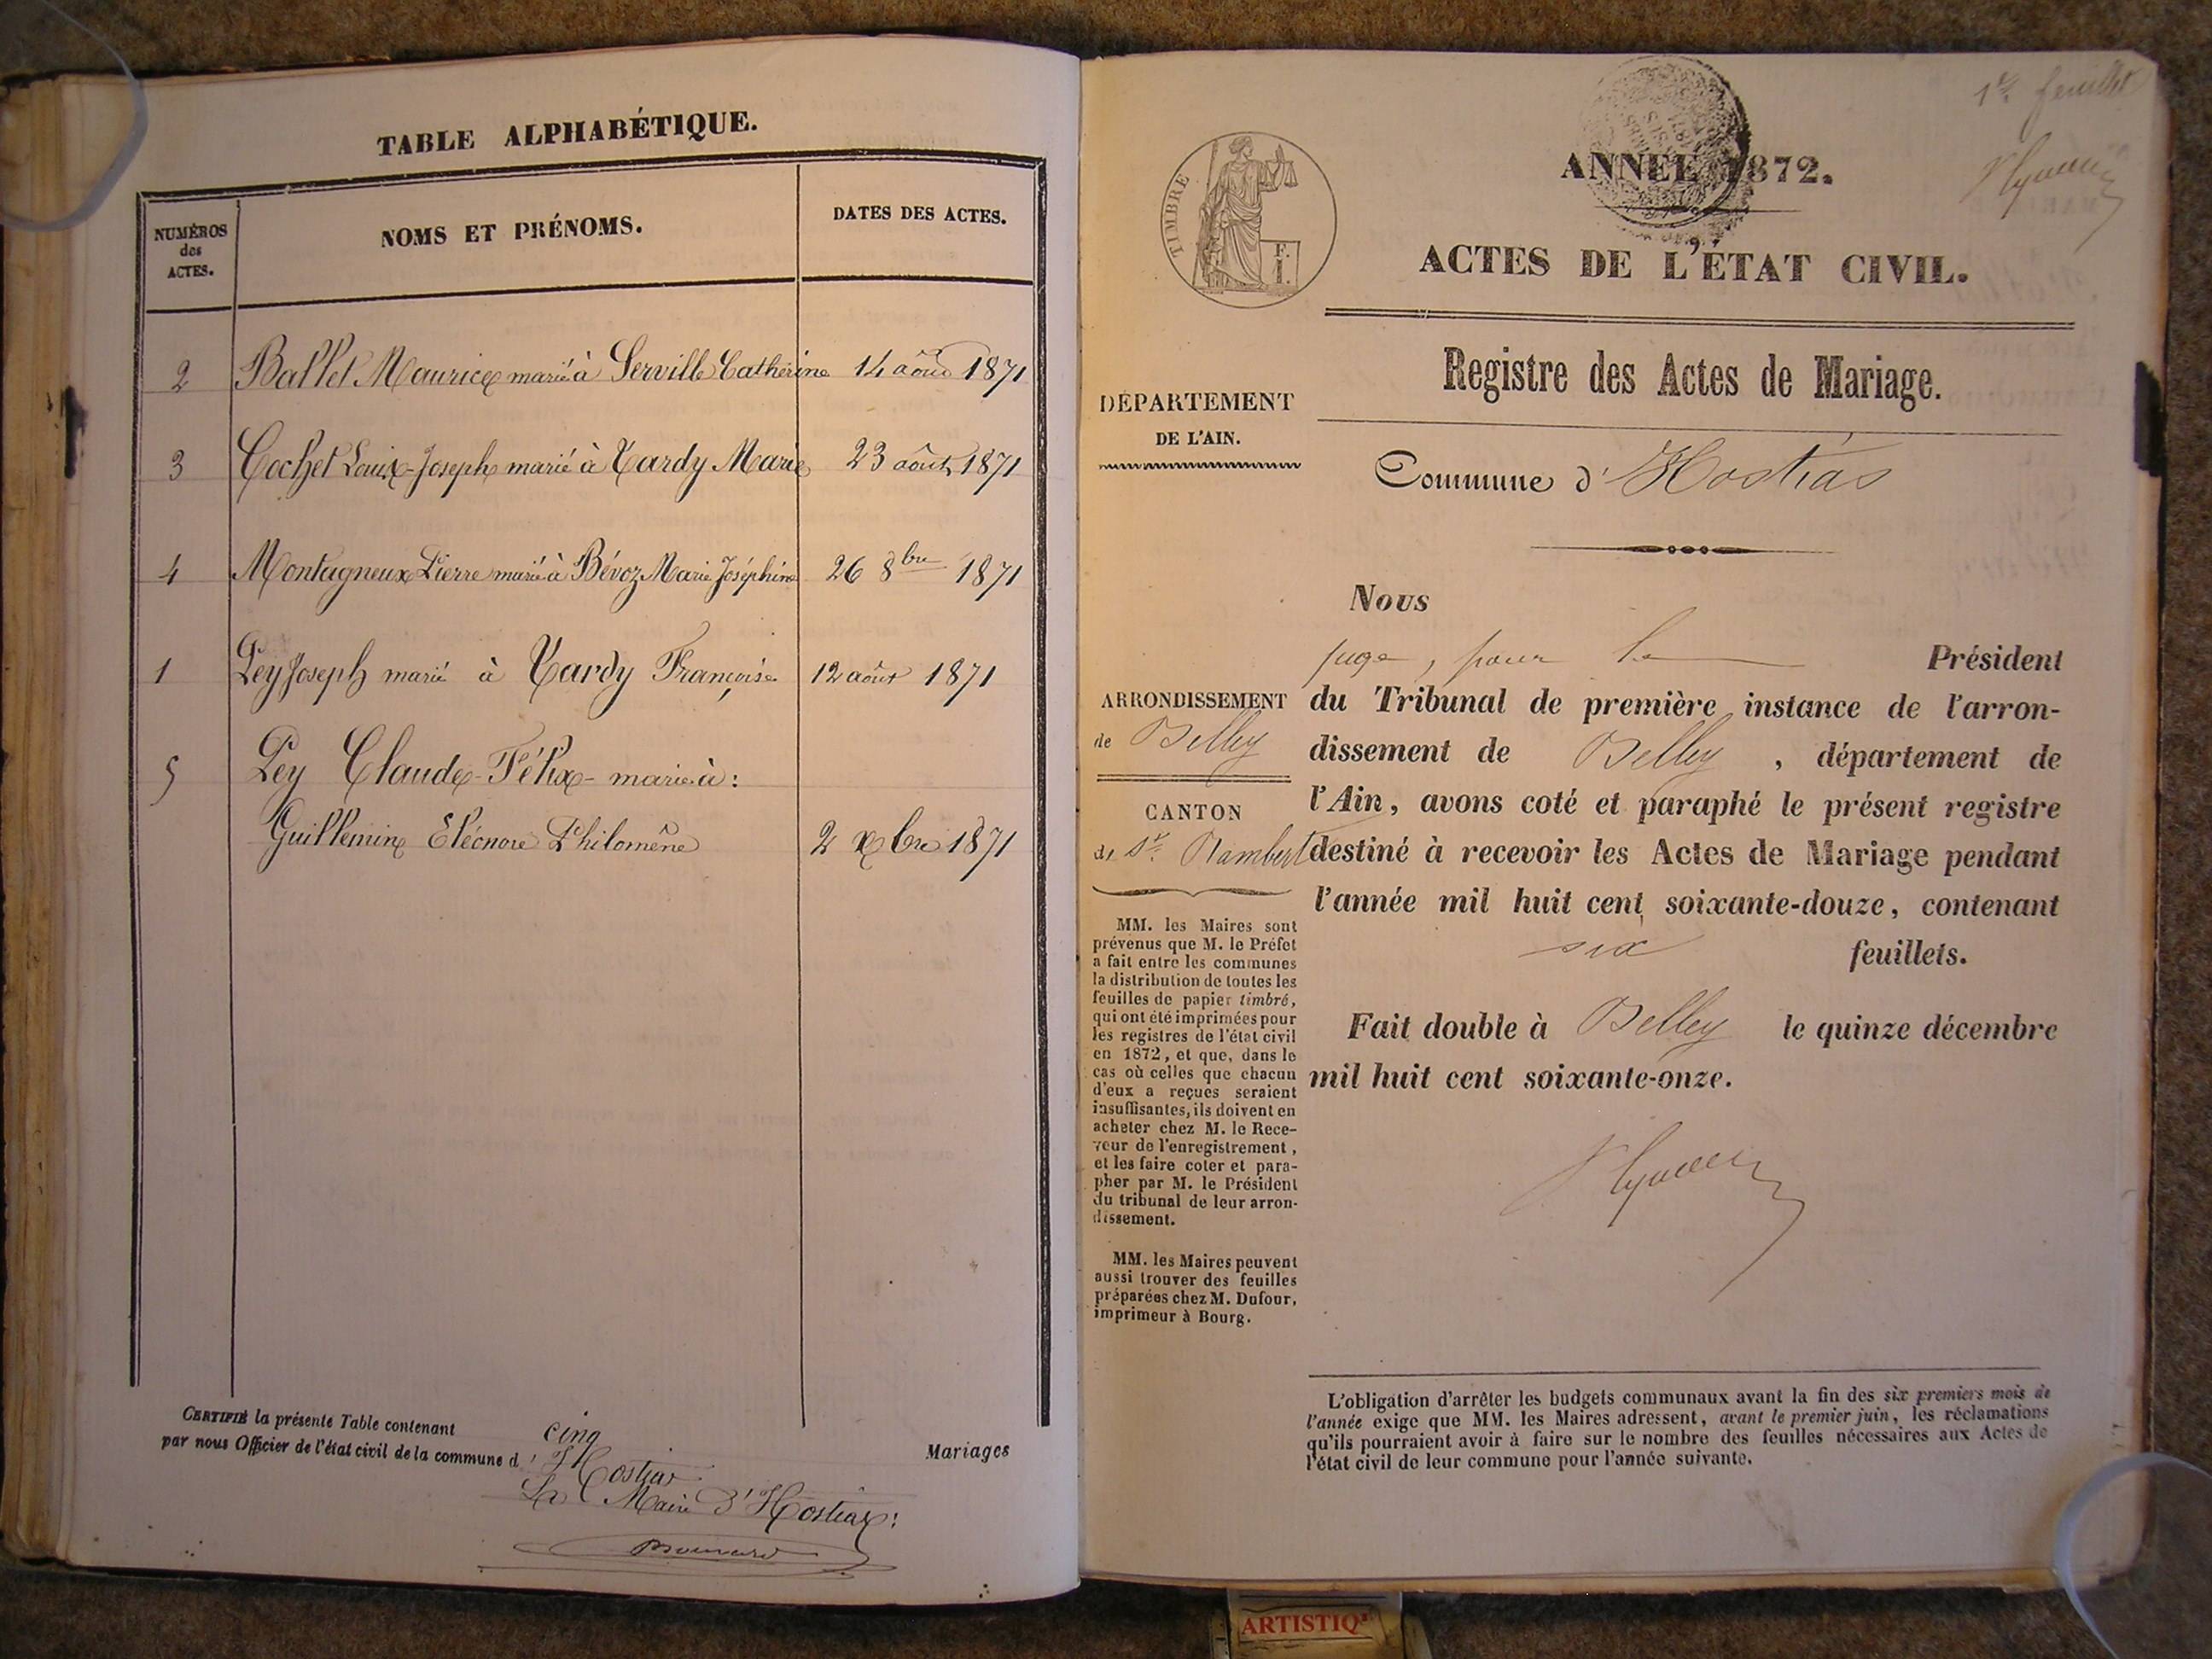 TABLE ALPHABÉTIQUE.
NUMÉROS
des
ACTES.
NOMS ET PRÉNOMS.
DATES DES ACTES.
2 Ballet Maurice marié à Serville Catherine 14 août 1871
3 Cochet Louis-Joseph marié à Tardy Marie 23 août 1871
4 Montagneux Pierre marié à Bévoz Marie Joséphine 26 8bre 1871
1 Pey Joseph marié à Tardy Françoise 12 août 1871
5 Pey Claude-Félix- marié à :
Guillemin Eléonore Philomène 2 xbre 1871
CERTIFIÉ la présente Table contenant cinq Mariages
par nous Officier de l'état civil de la commune d'Hostias
Le Maire d'Hostias :
1er feuillet
TIMBRE
F.
1.
ANNÉE 1872.
ACTES DE L'ÉTAT CIVIL.
Registre des Actes de Mariage.
DÉPARTEMENT
DE L'AIN.
Commune d'Hostias
ARRONDISSEMENT
de Belley
CANTON
de St. Rambert
MM. les Maires sont
prévenus que M. le Préfet
a fait entre les communes
la distribution de toutes les
feuilles de papier timbré,
qui ont été imprimées pour
les registres de l'état civil
en 1872, et que, dans le
cas où celles que chacun
d'eux a reçues seraient
insuffisantes, ils doivent en
acheter chez M. le Rece-
veur de l'enregistrement,
et les faire coter et para-
pher par M. le Président
du tribunal de leur arron-
dissement.
MM. les Maires peuvent
aussi trouver des feuilles
préparées chez M. Dufour,
imprimeur à Bourg.
Nous
juge, pour le Président
du Tribunal de première instance de l'arron-
dissement de Belley, département de
l'Ain, avons coté et paraphé le présent registre
destiné à recevoir les Actes de Mariage pendant
l'année mil huit cent soixante-douze, contenant
six feuillets.
Fait double à Belley le quinze décembre
mil huit cent soixante-onze.
L'obligation d'arrêter les budgets communaux avant la fin des six premiers mois de
l'année exige que MM. les Maires adressent, avant le premier juin, les réclamations
qu'ils pourraient avoir à faire sur le nombre des feuilles nécessaires aux Actes de
l'état civil de leur commune pour l'année suivante.
ARTISTIQ